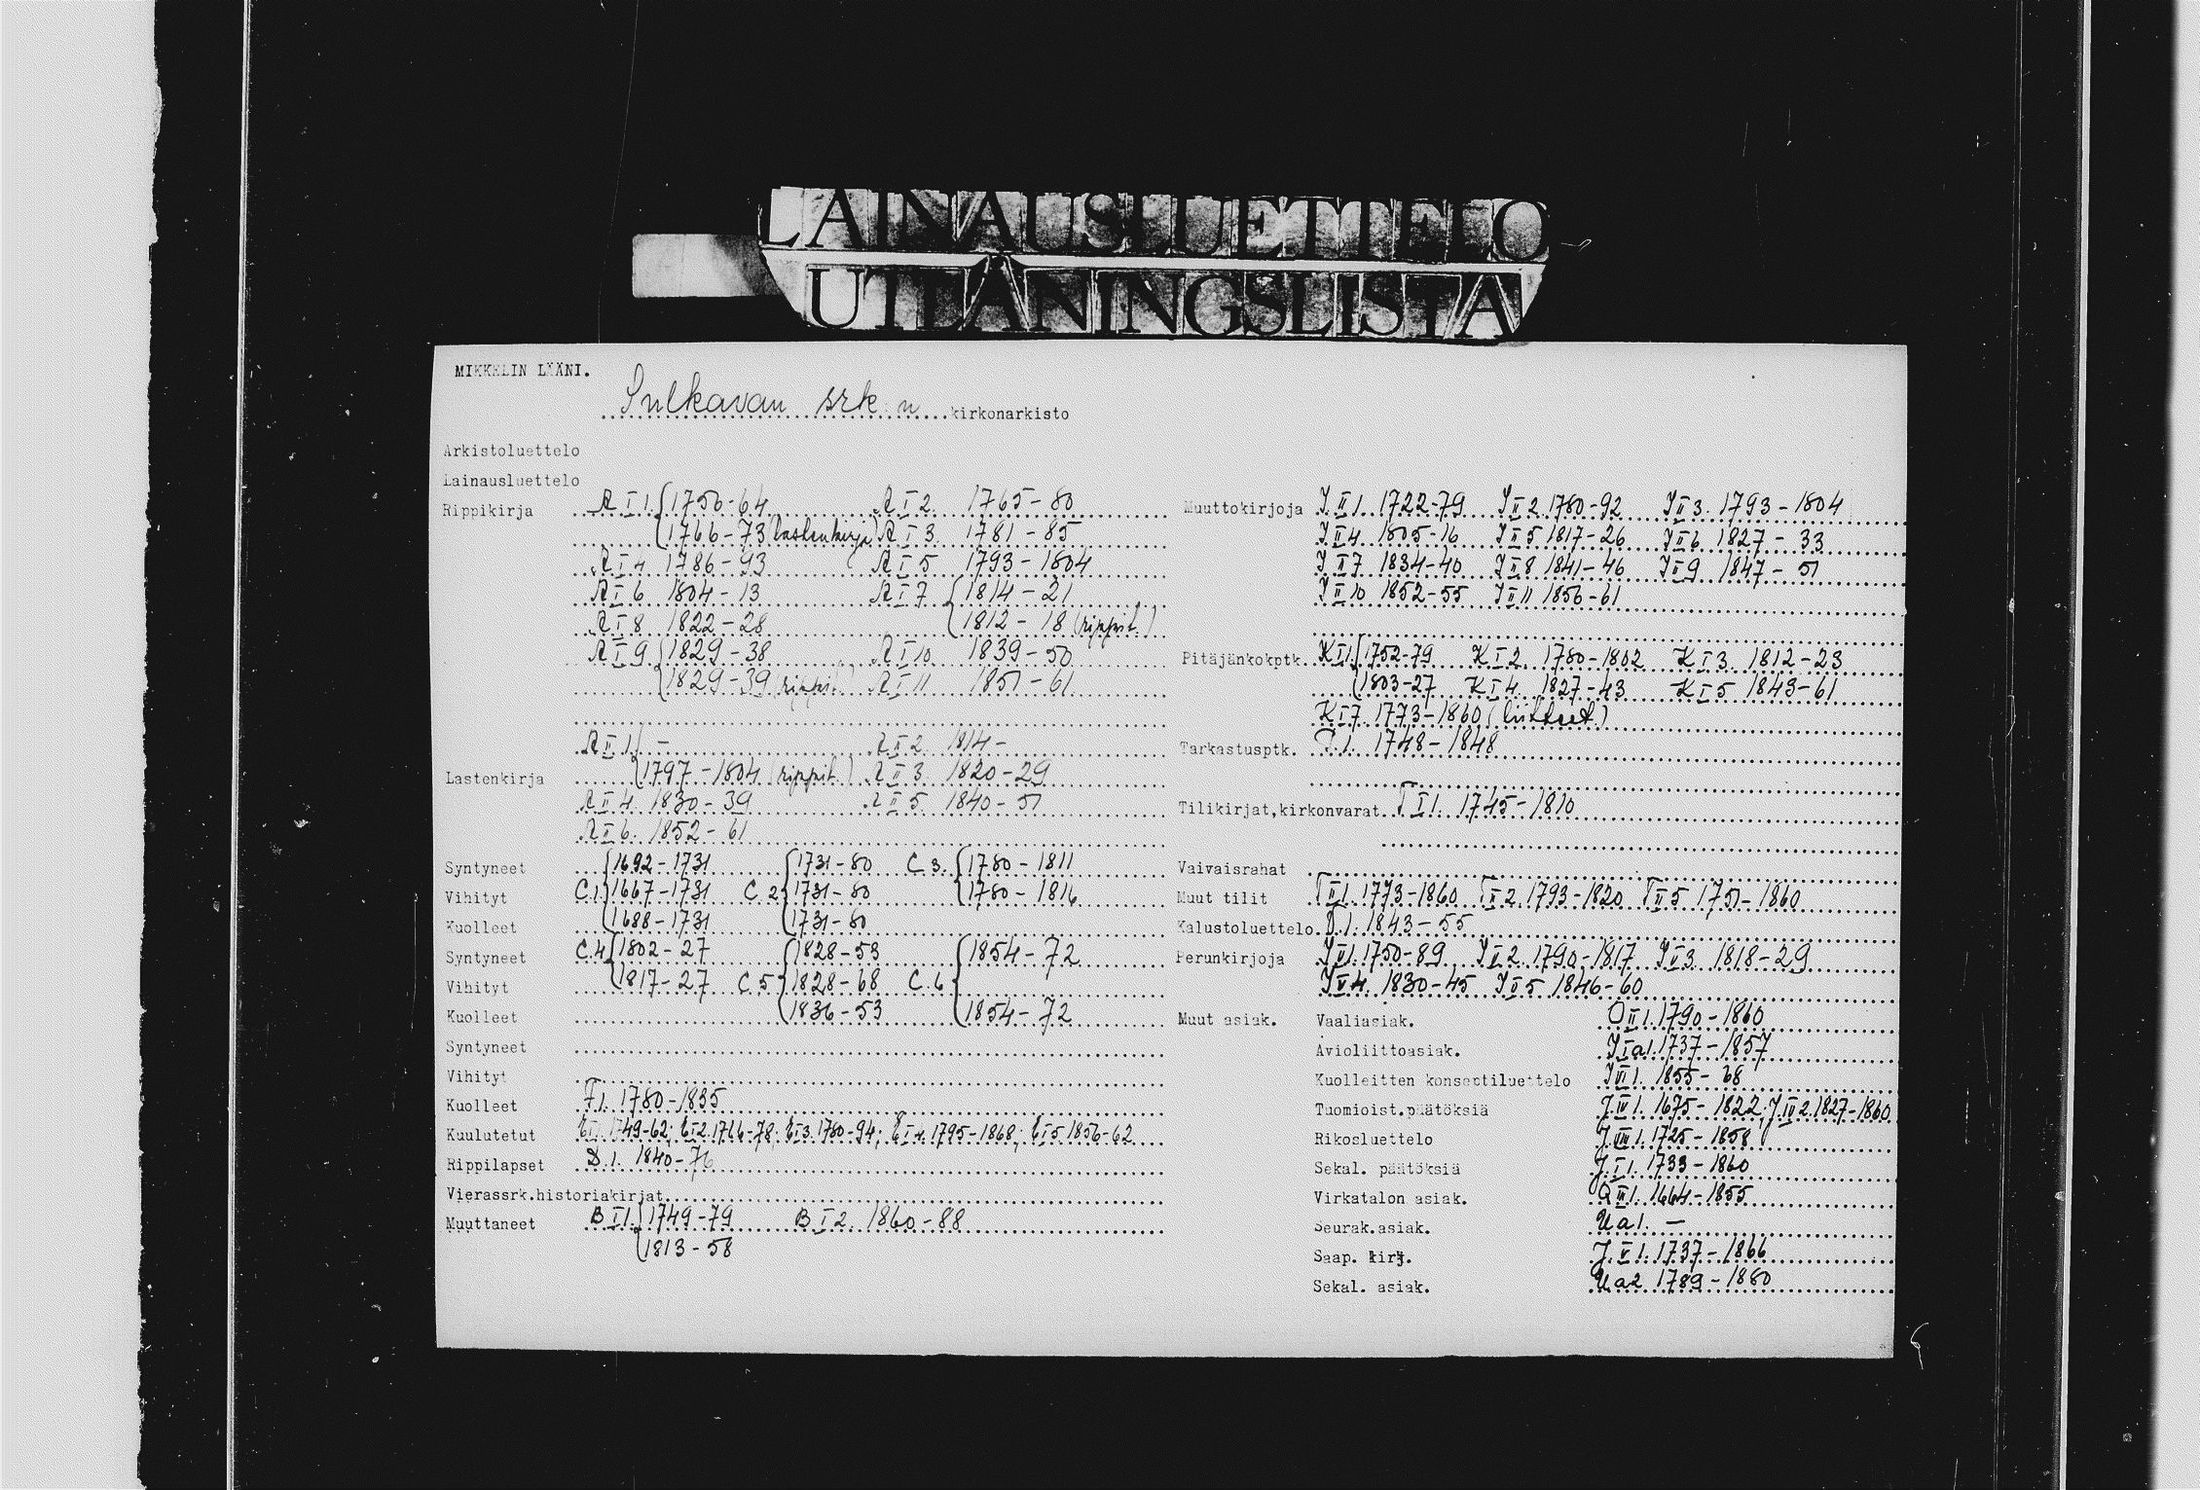 LAINAUSLUETTELO
UTLÅNINGSLISTA
MIKKELIN LÄÄNI.
Sulkavan srk:n kirkonarkisto
Arkistoluettelo
Lainausluettelo
Rippikirja A I 1. 1750-64 A I 2. 1765-80
1766-73 (lastenkirja) A I 3. 1781-85
A I 4 1786-93 A I 5 1793-1804
A I 6 1804-13 A I 7 1814-21
A I 8 1822-28 1812-18 (rippit.)
A I 9 1829-38 A I 10 1839-50
1829-39 (rippit.) A I 11 1851-61
A II 1. - A II 2. 1814-
Lastenkirja 1797-1804 (rippit.) A II 3. 1820-29
A II 4. 1830-39 A II 5. 1840-51
A II 6. 1852-61
Syntyneet 1692-1731 1731-80 C 3. 1780-1811
Vihityt C.1. 1667-1731 C 2 1731-80 1780-1816
Kuolleet 1688-1731 1731-80
Syntyneet C.4 1802-27 1828-53 1854-72
Vihityt 1817-27 C 5 1828-68 C.6
Kuolleet 1836-53 1854-72
Syntyneet
Vihityt
Kuolleet F1. 1780-1835
Kuulutetut E I 1. 1749-62; E I 2. 1766-78; E I 3. 1780-94; E I 4. 1795-1868; E I 5 1856-62
Rippilapset D.1. 1840-76
Vierassrk.historiakirjat
Muuttaneet B I 1. 1749-79 B I 2. 1860-88
1813-58
Muuttokirjoja J II 1. 1722-79 J II 2 1780-92 J II 3. 1793-1804
J II 4 1805-16 J II 5 1817-26 J II 6 1827-33
J II 7 1834-40 J II 8 1841-46 J II 9 1847-51
J II 10 1852-55 J II 11 1856-61
Pitäjänkokptk. K I 1. 1752-79 K I 2. 1780-1802 K I 3. 1812-23
1803-27 K I 4. 1827-43 K I 5 1843-61
K I 7. 1773-1860 (liitteet)
Tarkastusptk. 1. 1748-1848
Tilikirjat,kirkonvarat. T I 1. 1745-1810
Vaivaisrahat
Muut tilit T II 1. 1773-1860 T II 2. 1793-1820 T II 5 1751-1860
Kalustoluettelo 1. 1843-55
Perunkirjoja J V 1. 1750-89 J V 2. 1790-1817 J V 3. 1818-29
J V 4. 1830-45 J V 5 1846-60
Muut asiak. Vaaliasiak. O II 1. 1790-1860
Avioliittoasiak. J I a 1. 1737-1857
Kuolleitten konseptiluettelo 1. 1855-68
Tuomioist.päätöksiä J. IV 1. 1675-1822, J. IV 2. 1827-1860
Rikosluettelo J. VIII 1. 1725-1858
Sekal. päätöksiä J. 1. 1733-1860
Virkatalon asiak. O III 1. 1664-1855
Seurak.asiak. U a 1. -
Saap. kirj. J. V 1. 1737-1866
Sekal. asiak. U a 2. 1789-1880